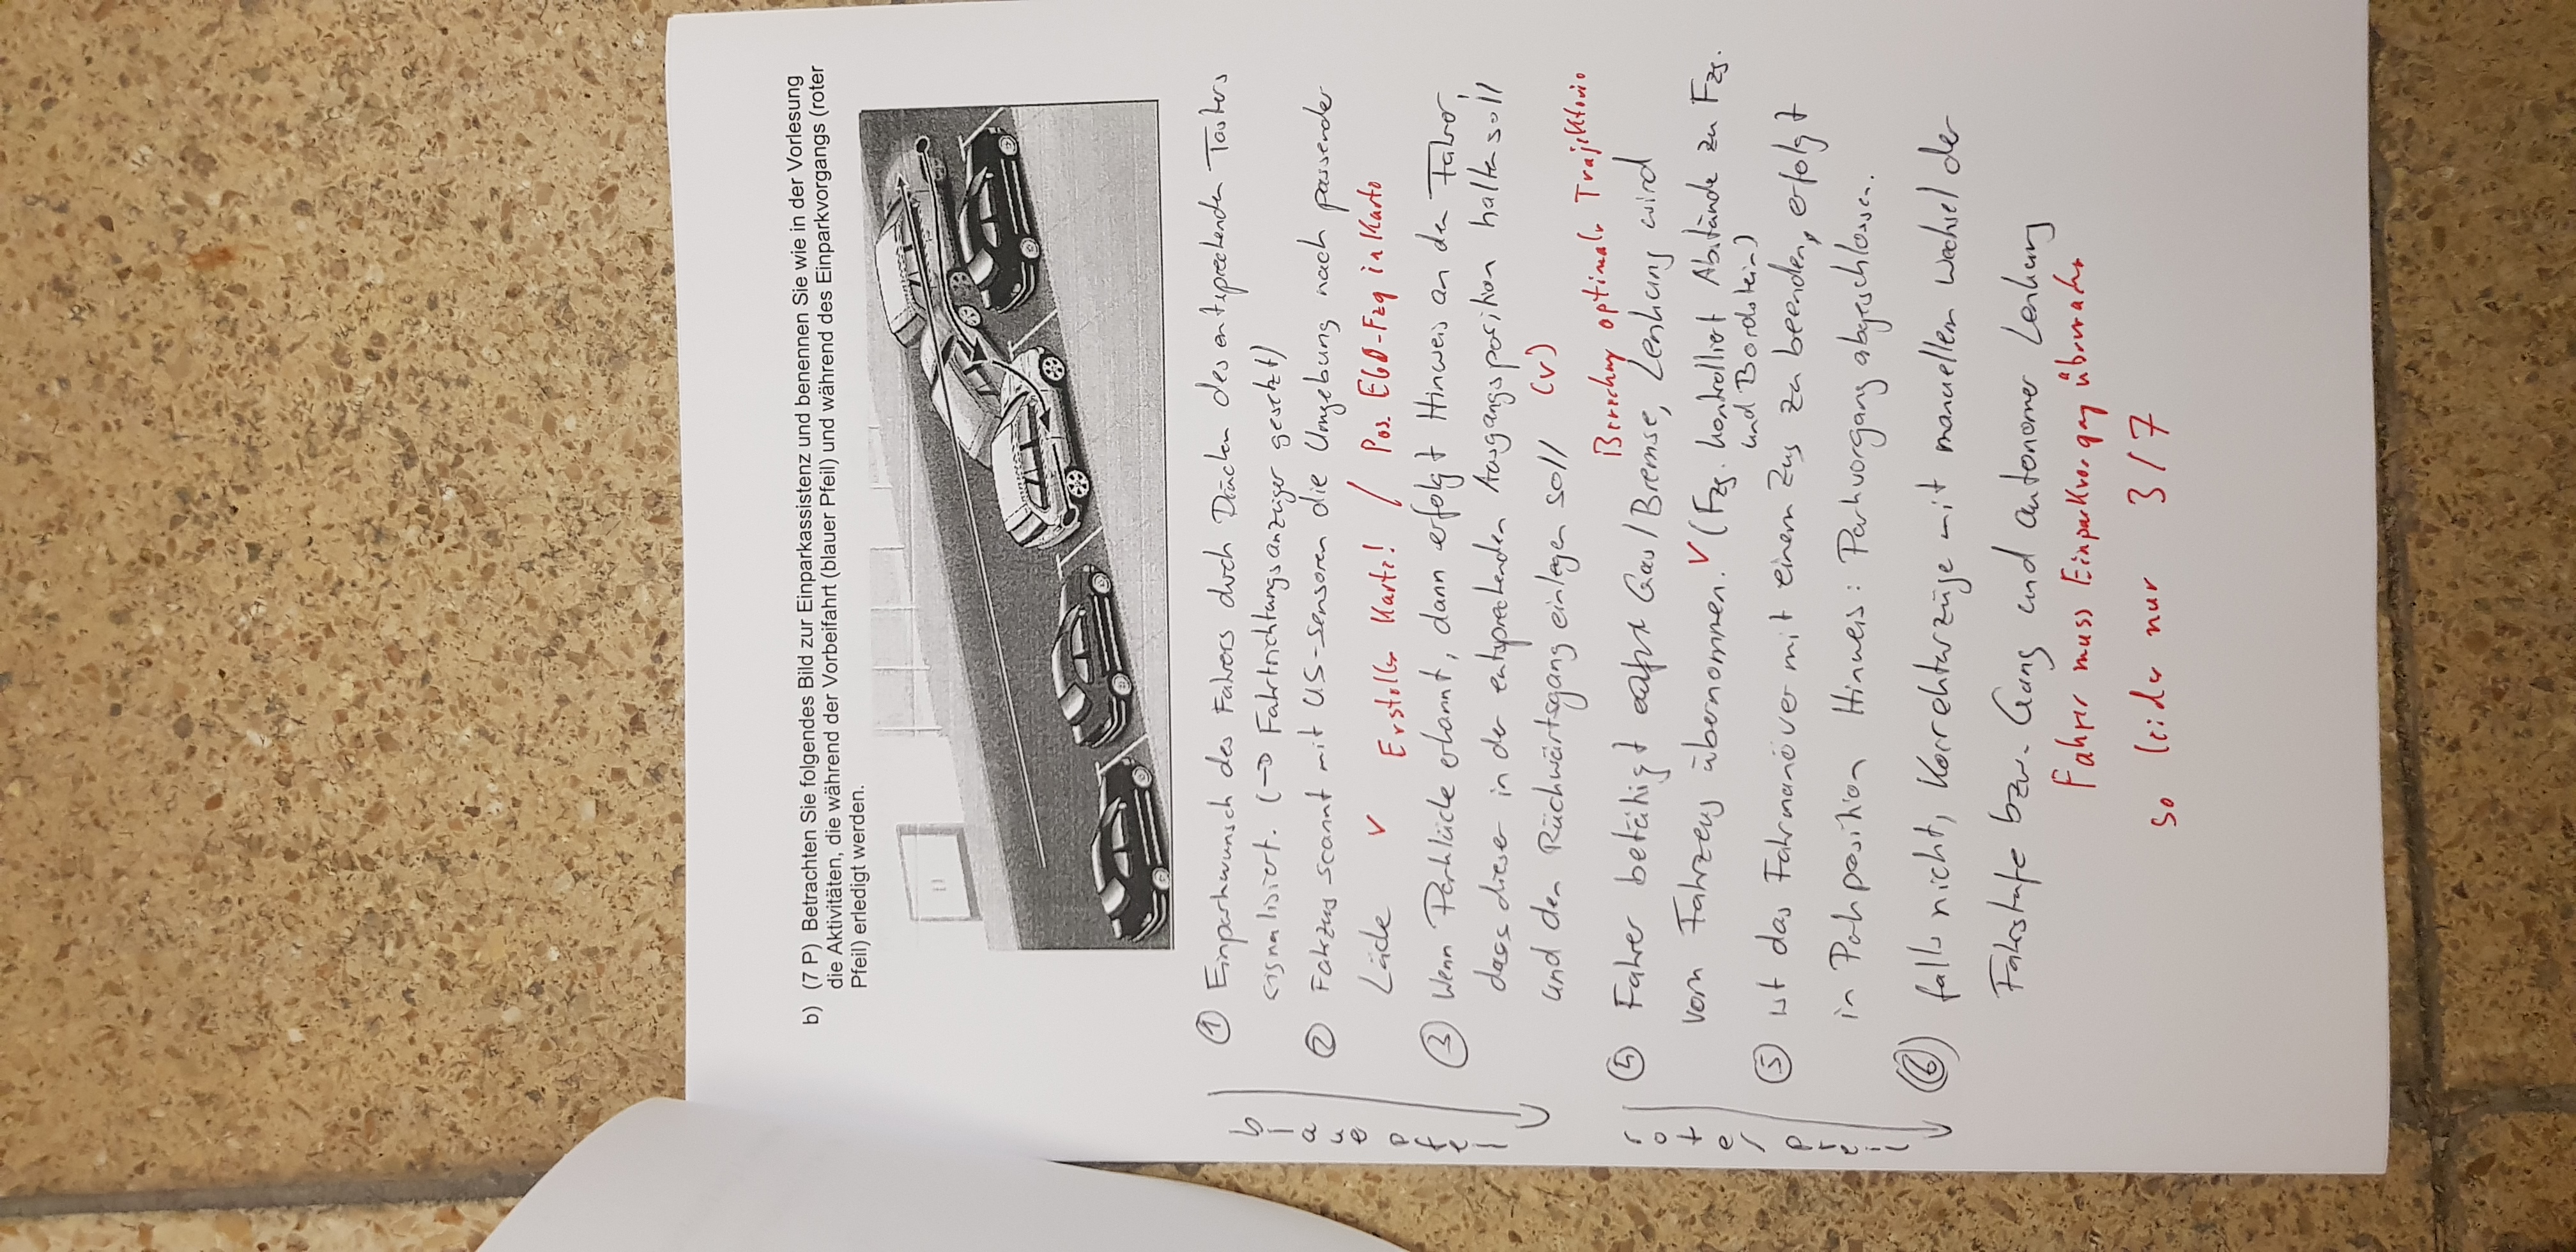 b) (7 P) Betrachten Sie folgendes Bild zur Einparkassistenz und benennen Sie wie in der Vorlesung
die Aktivitäten, die während der Vorbeifahrt (blauer Pfeil) und während des Einparkvorgangs (roter
Pfeil) erledigt werden.
① Einparkwunsch des Fahrers durch Drücken des entsprechenden Tasters
signalisiert. (→ Fahrtrichtungsanzeiger gesetzt)
② Fahrzeug scannt mit US-Sensoren die Umgebung nach passender
Lücke ✓ Erstellen Karte! / Pos. EGO-Fzg in Karte
③ Wenn Parklücke erkannt, dann erfolgt Hinweis an den Fahrer,
dass dieser in der entsprechenden Ausgangsposition halten soll
und den Rückwärtsgang einlegen soll (✓)
blaue pfeil
Berechnung optimale Trajektorie
④ Fahrer betätigt Gas/Bremse, Lenkung wird
vom Fahrzeug übernommen. ✓ (Fzg. kontrolliert Abstände zu Fzg.
und Bordstein)
⑤ ist das Fahrmanöver mit einem Zug zu beenden, erfolgt
in Parkposition Hinweis: Parkvorgang abgeschlossen.
roter pfeil
⑥ falls nicht, Korrekturzüge mit manuellem Wechsel der
Fahrstufe bzw. Gang und autonomer Lenkung
Fahrer muss Einparkvorgang überwachen
so leider nur 3/7